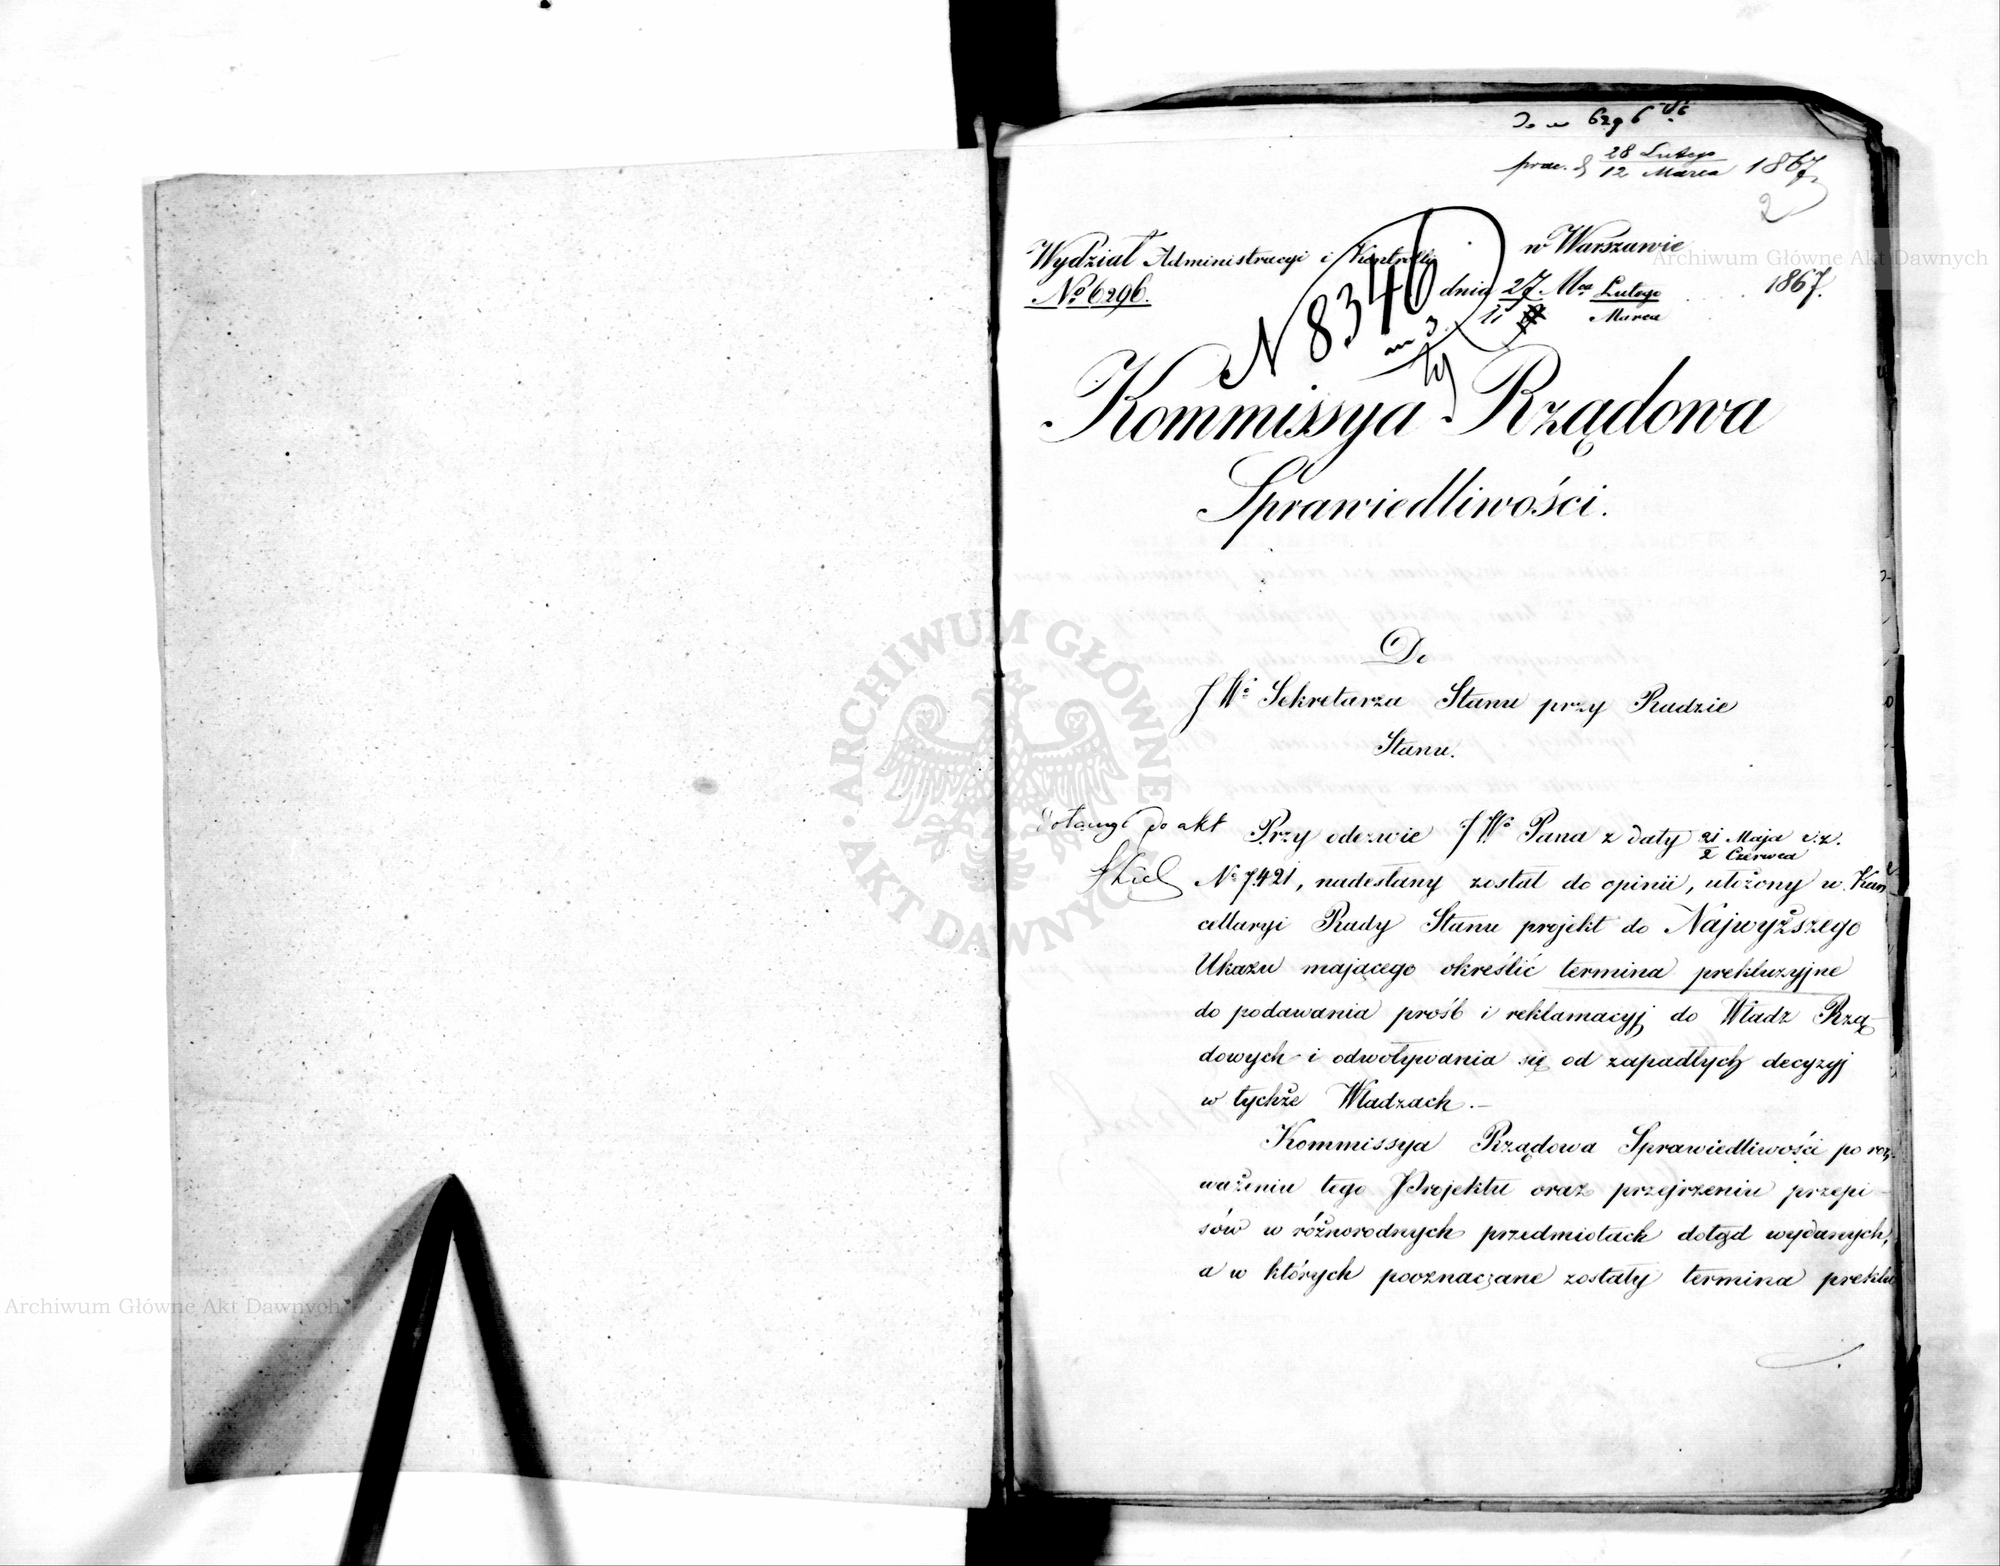 6296
28 Lutego
12 Marca 1867
2
Wydział Administracyi i Kontrolli
w Warszawie
№ 6296.
dnia 27 Lutego 1867.
11 Marca
N 8346
Kommissya Rządowa
Sprawiedliwości.
Do
JWo Sekretarza Stanu przy Radzie
Stanu.
do akt
Przy odezwie JWo Pana z daty 21 Maja r. z.
2 Czerwca
№ 7421, nadesłany został do opinii, ułożony w Kan
cellaryi Rady Stanu projekt do Najwyższego
Ukazu mającego określić termina prekluzyjne
do podawania próśb i reklamacyj do Władz Rzą-
dowych i odwoływania się od zapadłych decyzyj
w tychże Władzach.-
Kommissya Rządowa Sprawiedliwości po roz-
ważeniu tego Projektu oraz przejrzeniu przepi-
sów w różnorodnych przedmiotach dotąd wydanych,
a w których pooznaczane zostały termina preklu
ARCHIWUM GŁÓWNE AKT DAWNYCH
Archiwum Główne Akt Dawnych
Archiwum Główne Akt Dawnych